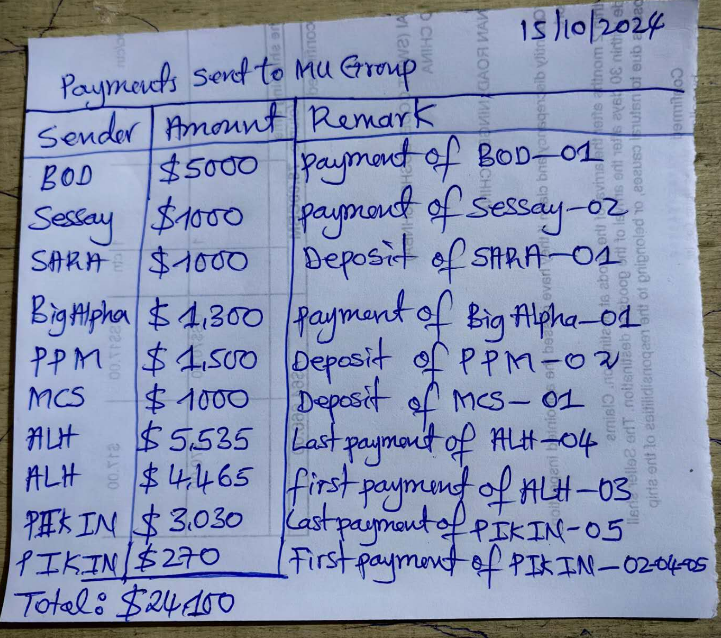 15/10/2024
Payments Sent to MU Group
Sender Amount Remark
BOD $5000 payment of BOD-01
Sessay $1000 payment of Sessay-02
SARA $1000 Deposit of SARA-01
Big Alpha $1,300 payment of Big Alpha-01
PPM $1,500 Deposit of PPM-02
MCS $1000 Deposit of MCS-01
ALH $5,535 Last payment of ALH-04
ALH $4,465 first payment of ALH-03
PIKIN $3,030 Last payment of PIKIN-05
PIKIN $270 First payment of PIKIN-02-04-05
Total: $24,100